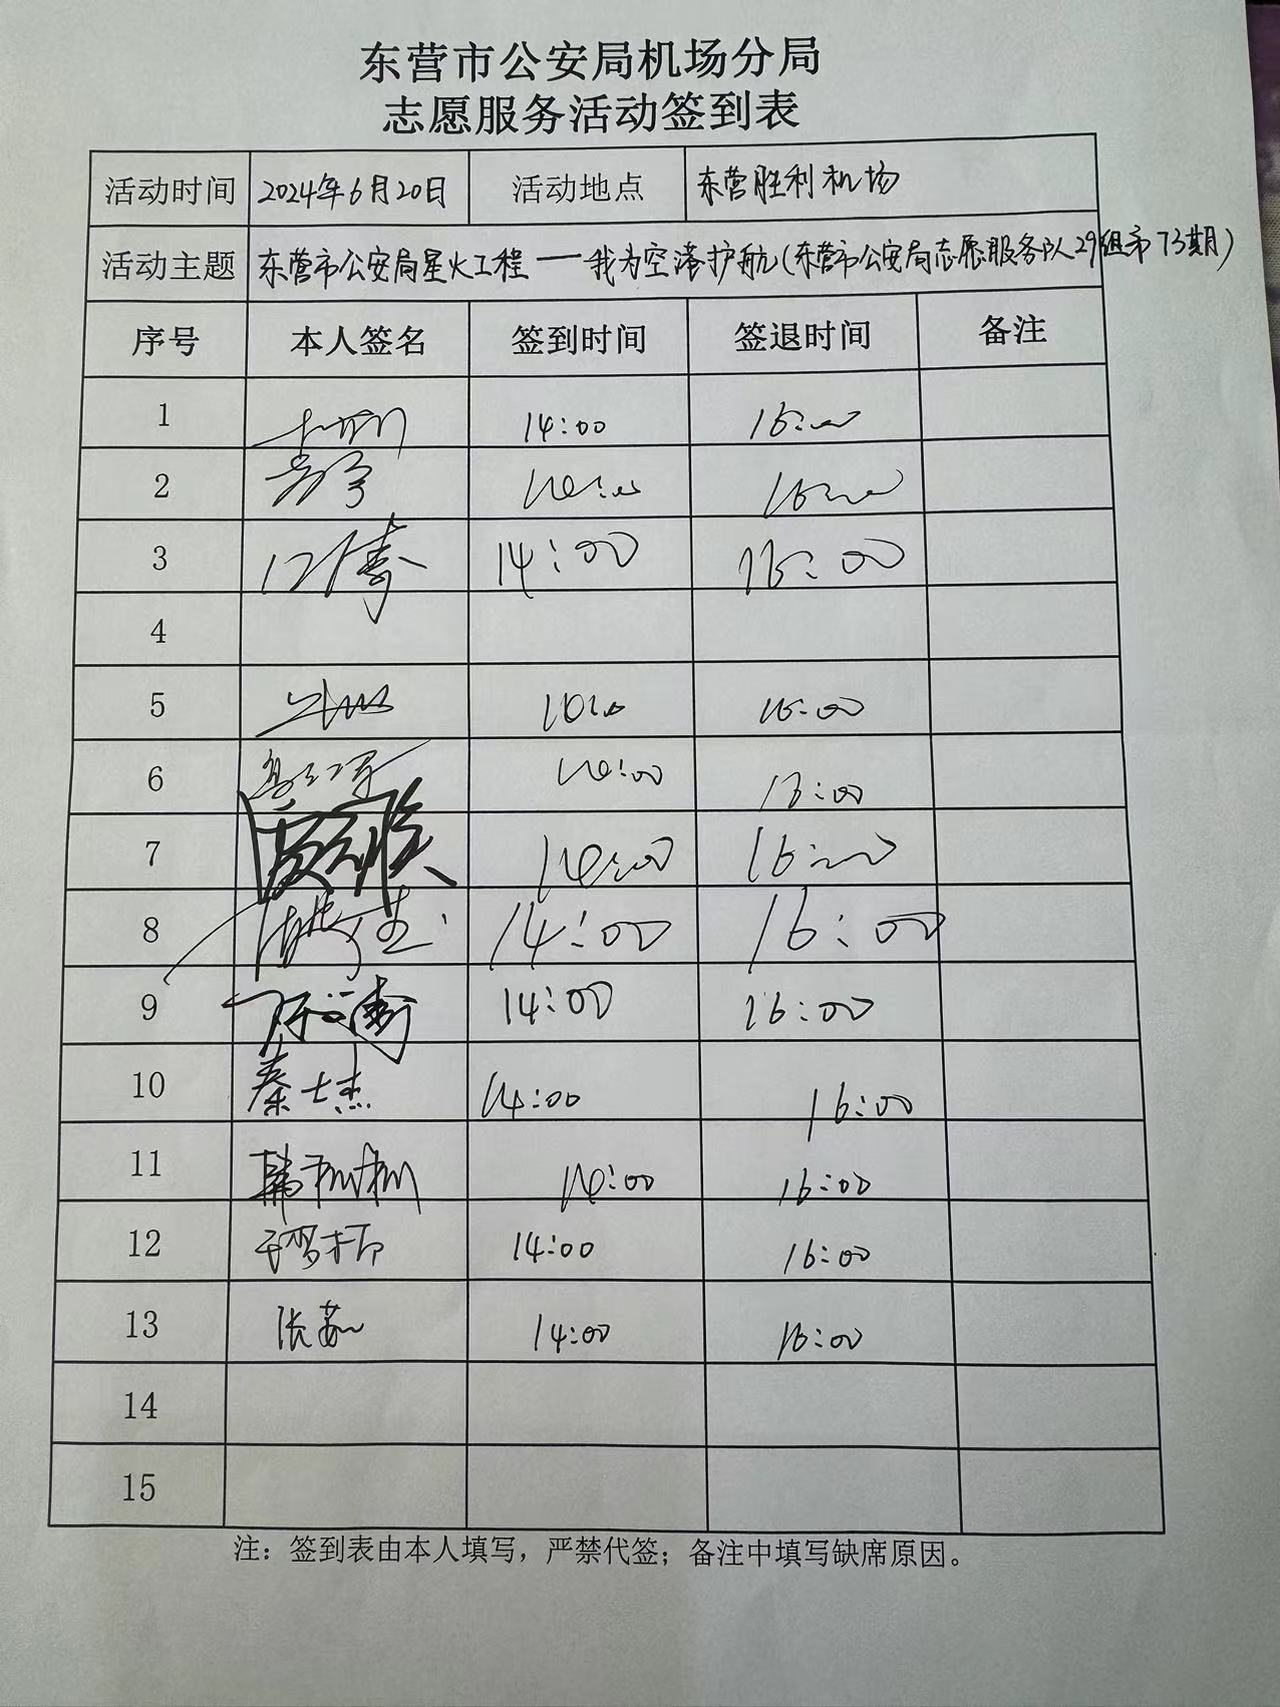 东营市公安局机场分局
志愿服务活动签到表
活动时间 2024年6月20日 活动地点 东营胜利机场
活动主题 东营市公安局星火工程——我为空港护航(东营市公安局志愿服务队29组第73期)
序号 本人签名 签到时间 签退时间 备注
1 14:00 16:00
2 14:00 16:00
3 14:00 16:00
4
5 14:00 16:00
6 14:00 16:00
7 14:00 16:00
8 14:00 16:00
9 14:00 16:00
10 秦士杰 14:00 16:00
11 韩树彬 14:00 16:00
12 14:00 16:00
13 张茹 14:00 16:00
14
15
注：签到表由本人填写，严禁代签；备注中填写缺席原因。